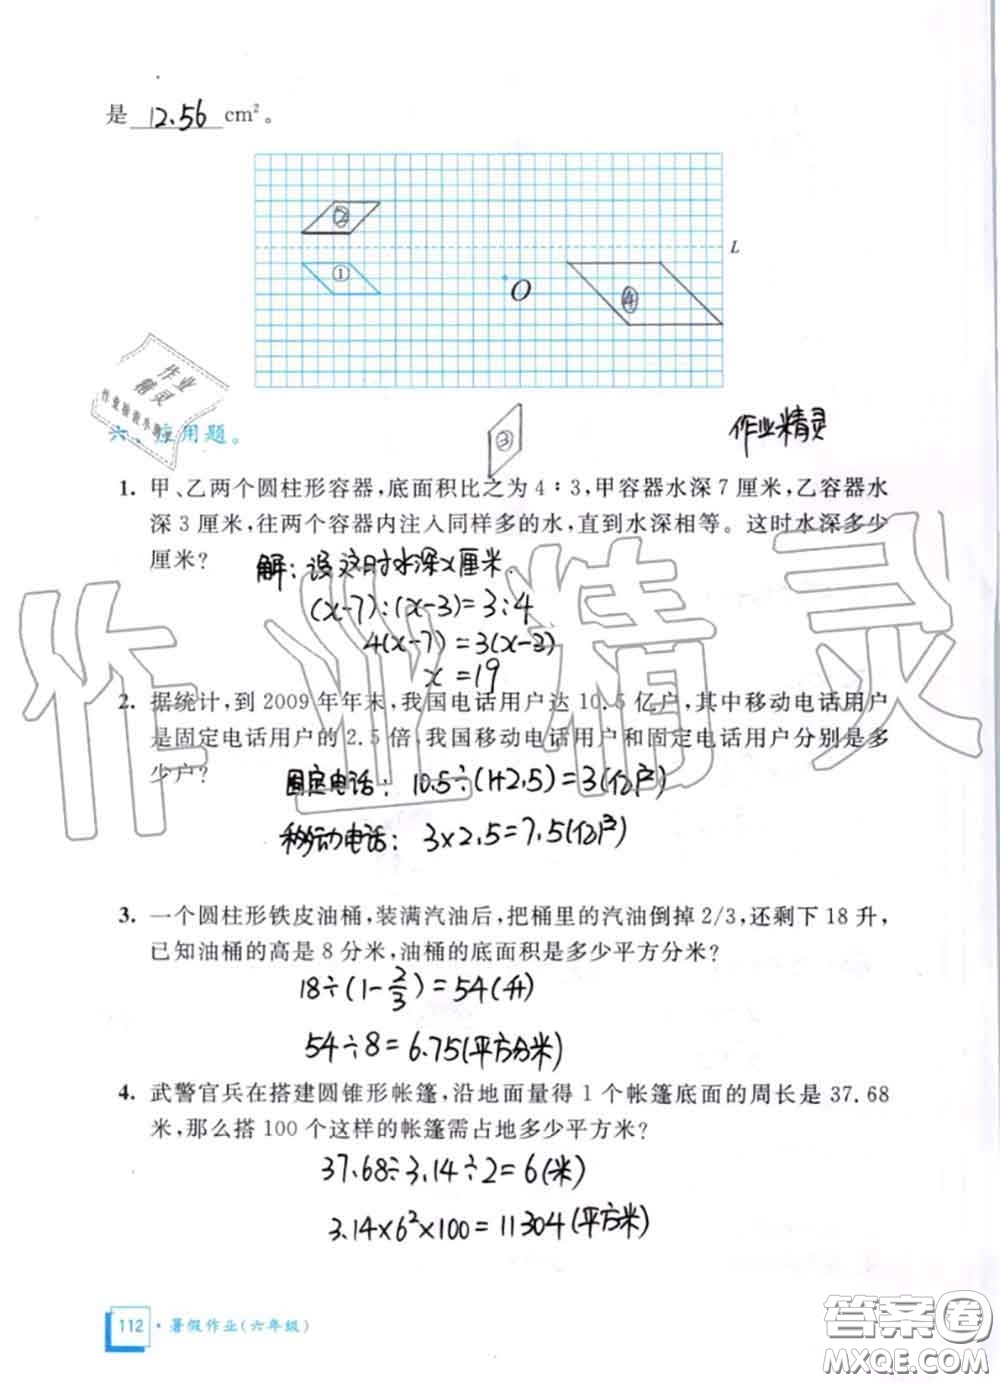 是 12.56 cm²。
②
L
①
O
④
③
作业
精灵
作业精灵
六、应用题。
1. 甲、乙两个圆柱形容器,底面积比之为4∶3,甲容器水深7厘米,乙容器水
深3厘米,往两个容器内注入同样多的水,直到水深相等。这时水深多少
厘米?
解:设这时水深x厘米.
(x-7):(x-3)=3:4
4(x-7)=3(x-3)
x=19
2. 据统计,到2009年年末,我国电话用户达10.5亿户,其中移动电话用户
是固定电话用户的2.5倍,我国移动电话用户和固定电话用户分别是多
少户?
固定电话: 10.5÷(1+2.5)=3(亿户)
移动电话: 3×2.5=7.5(亿户)
3. 一个圆柱形铁皮油桶,装满汽油后,把桶里的汽油倒掉2/3,还剩下18升,
已知油桶的高是8分米,油桶的底面积是多少平方分米?
18÷(1-2/3)=54(升)
54÷8=6.75(平方分米)
4. 武警官兵在搭建圆锥形帐篷,沿地面量得1个帐篷底面的周长是37.68
米,那么搭100个这样的帐篷需占地多少平方米?
37.68÷3.14÷2=6(米)
3.14×6²×100=11304(平方米)
作业精灵
112·暑假作业(六年级)
答案圈
MXQE.COM